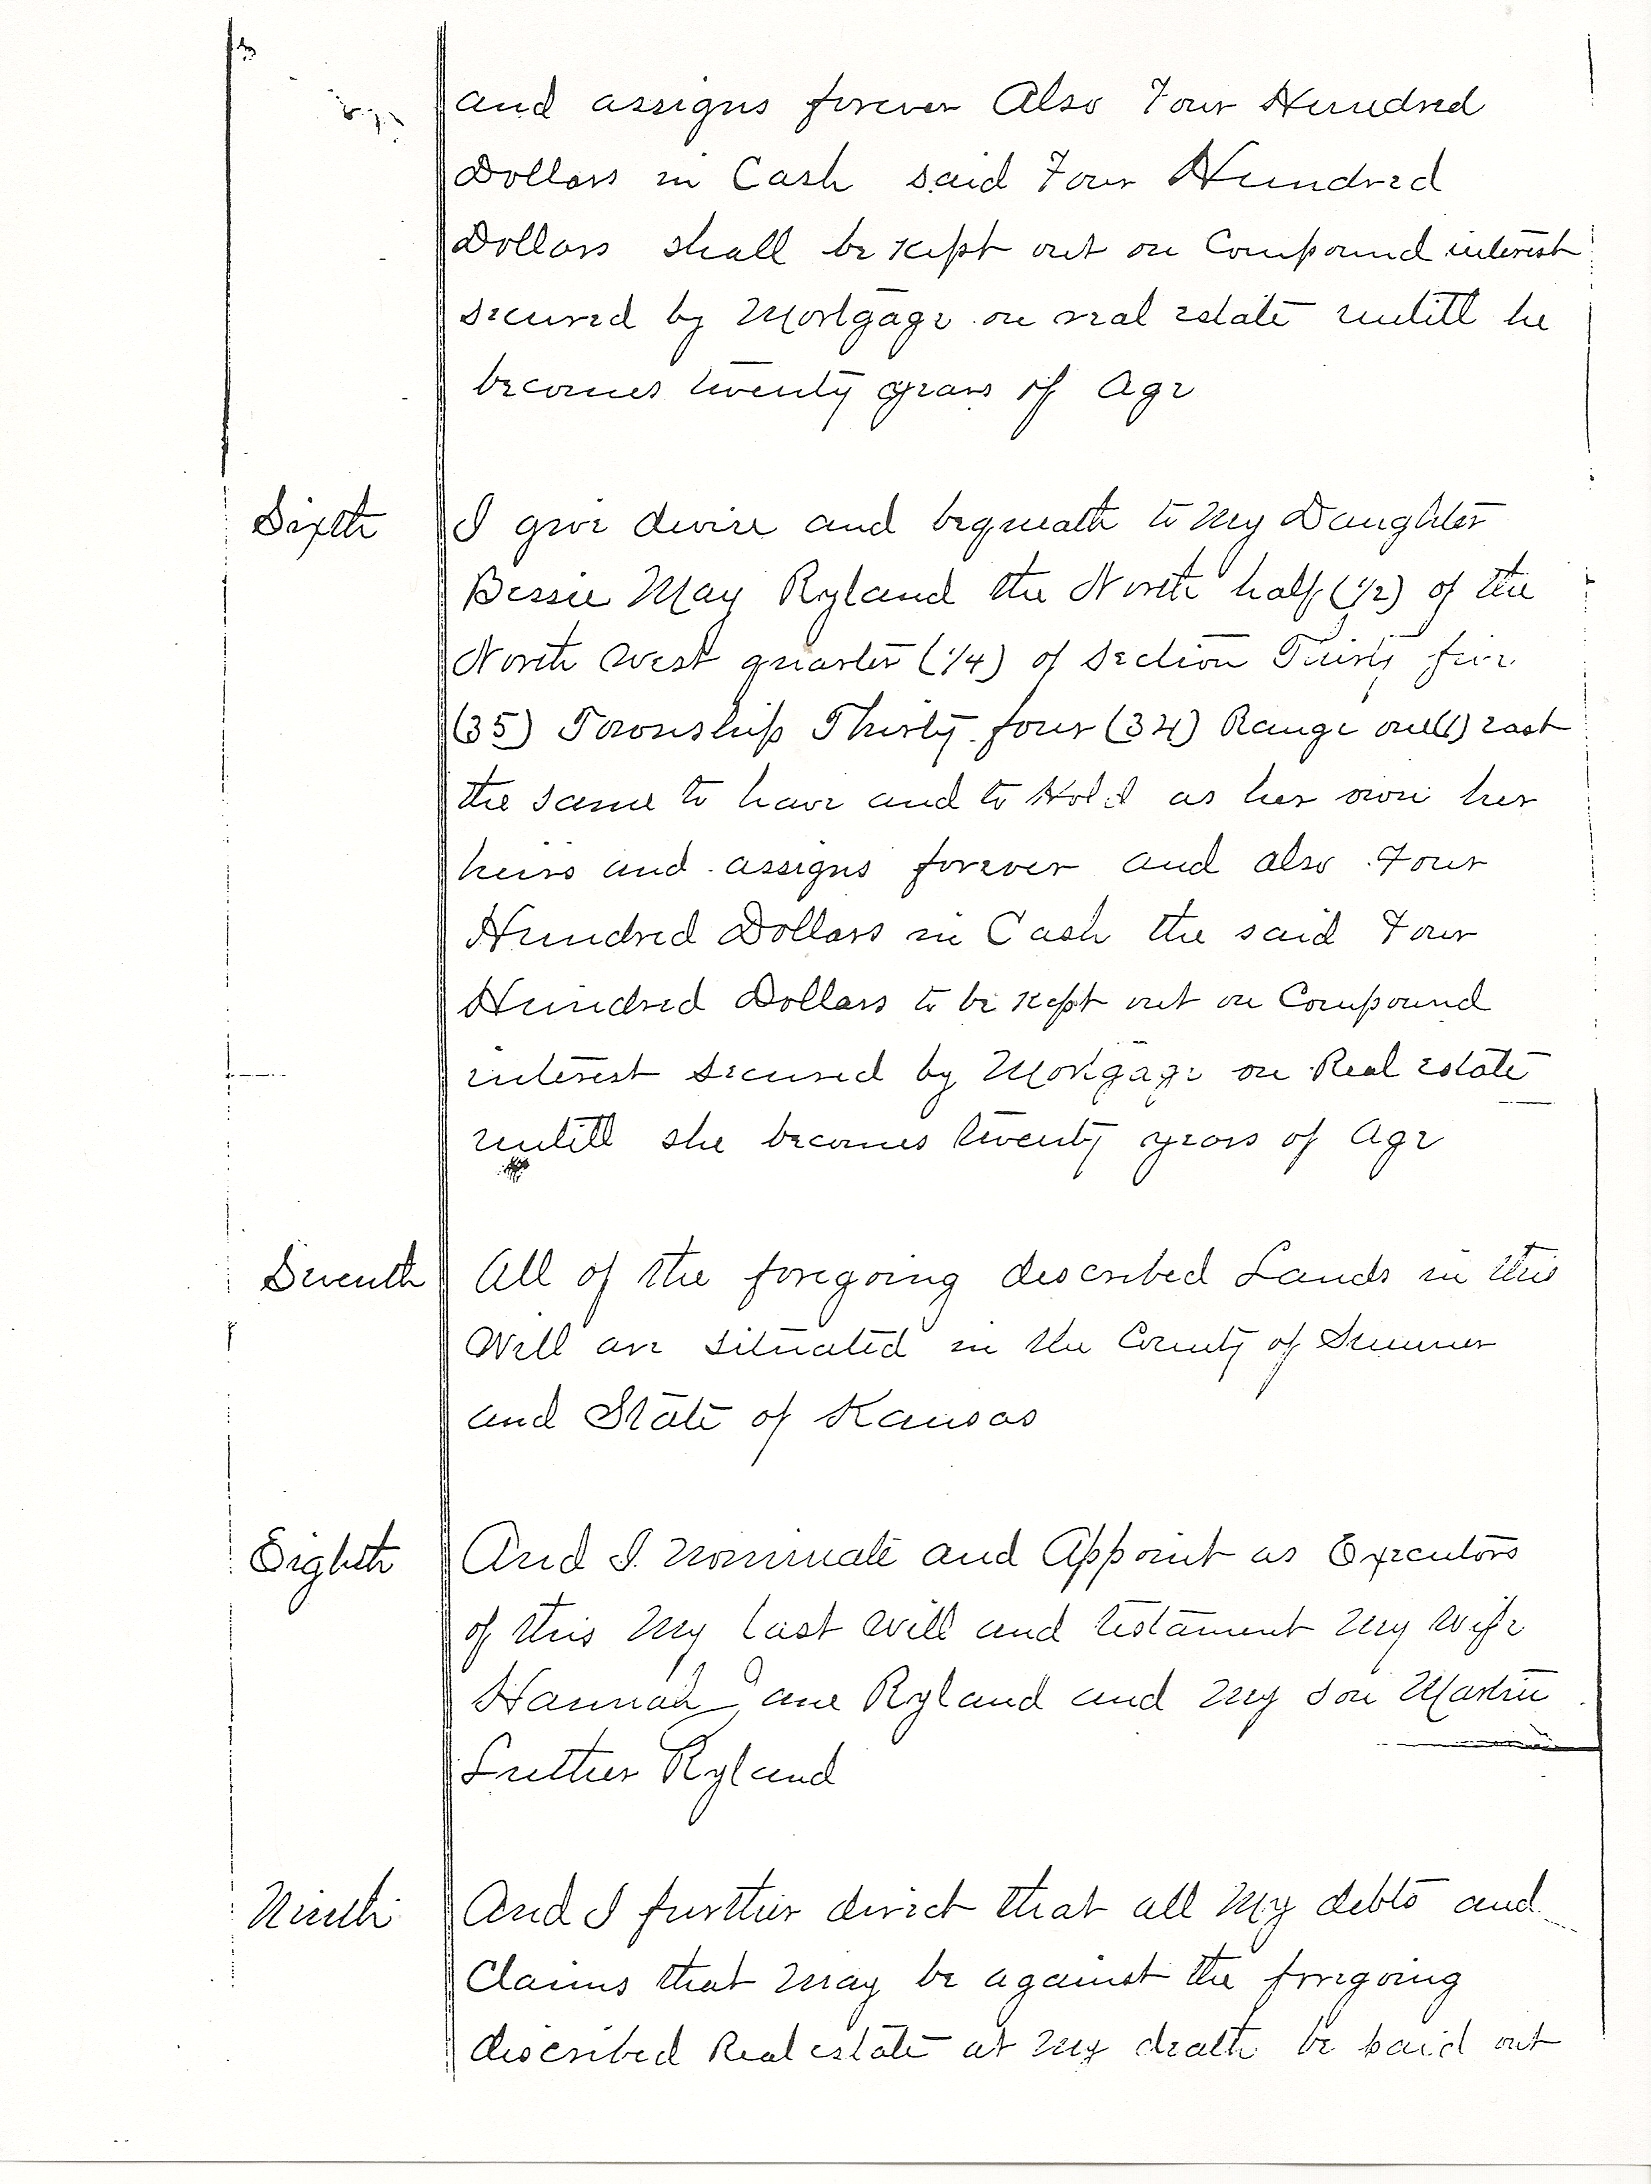 and assigns forever Also Four Hundred
Dollars in Cash said Four Hundred
Dollars shall be kept out on Compound interest
secured by Mortgage on real estate untill he
becomes twenty years of Age
Sixth I give devise and bequeath to My Daughter
Bessie May Ryland the North half (1/2) of the
North West quarter (1/4) of Section Thirty five
(35) Township Thirty four (34) Range one(1) east
the same to have and to Hold as her own her
heirs and assigns forever and also Four
Hundred Dollars in Cash the said Four
Hundred Dollars to be kept out on Compound
interest secured by Mortgage on Real estate
untill she becomes twenty years of Age
Seventh All of the foregoing described Lands in this
Will are situated in the County of Sumner
and State of Kansas
Eighth And I nominate and Appoint as Executors
of this My last Will and testament My Wife
Hannah Jane Ryland and My son Martin
Luther Ryland
Ninth And I further direct that all My debts and
Claims that May be against the foregoing
described Real estate at My death be paid out